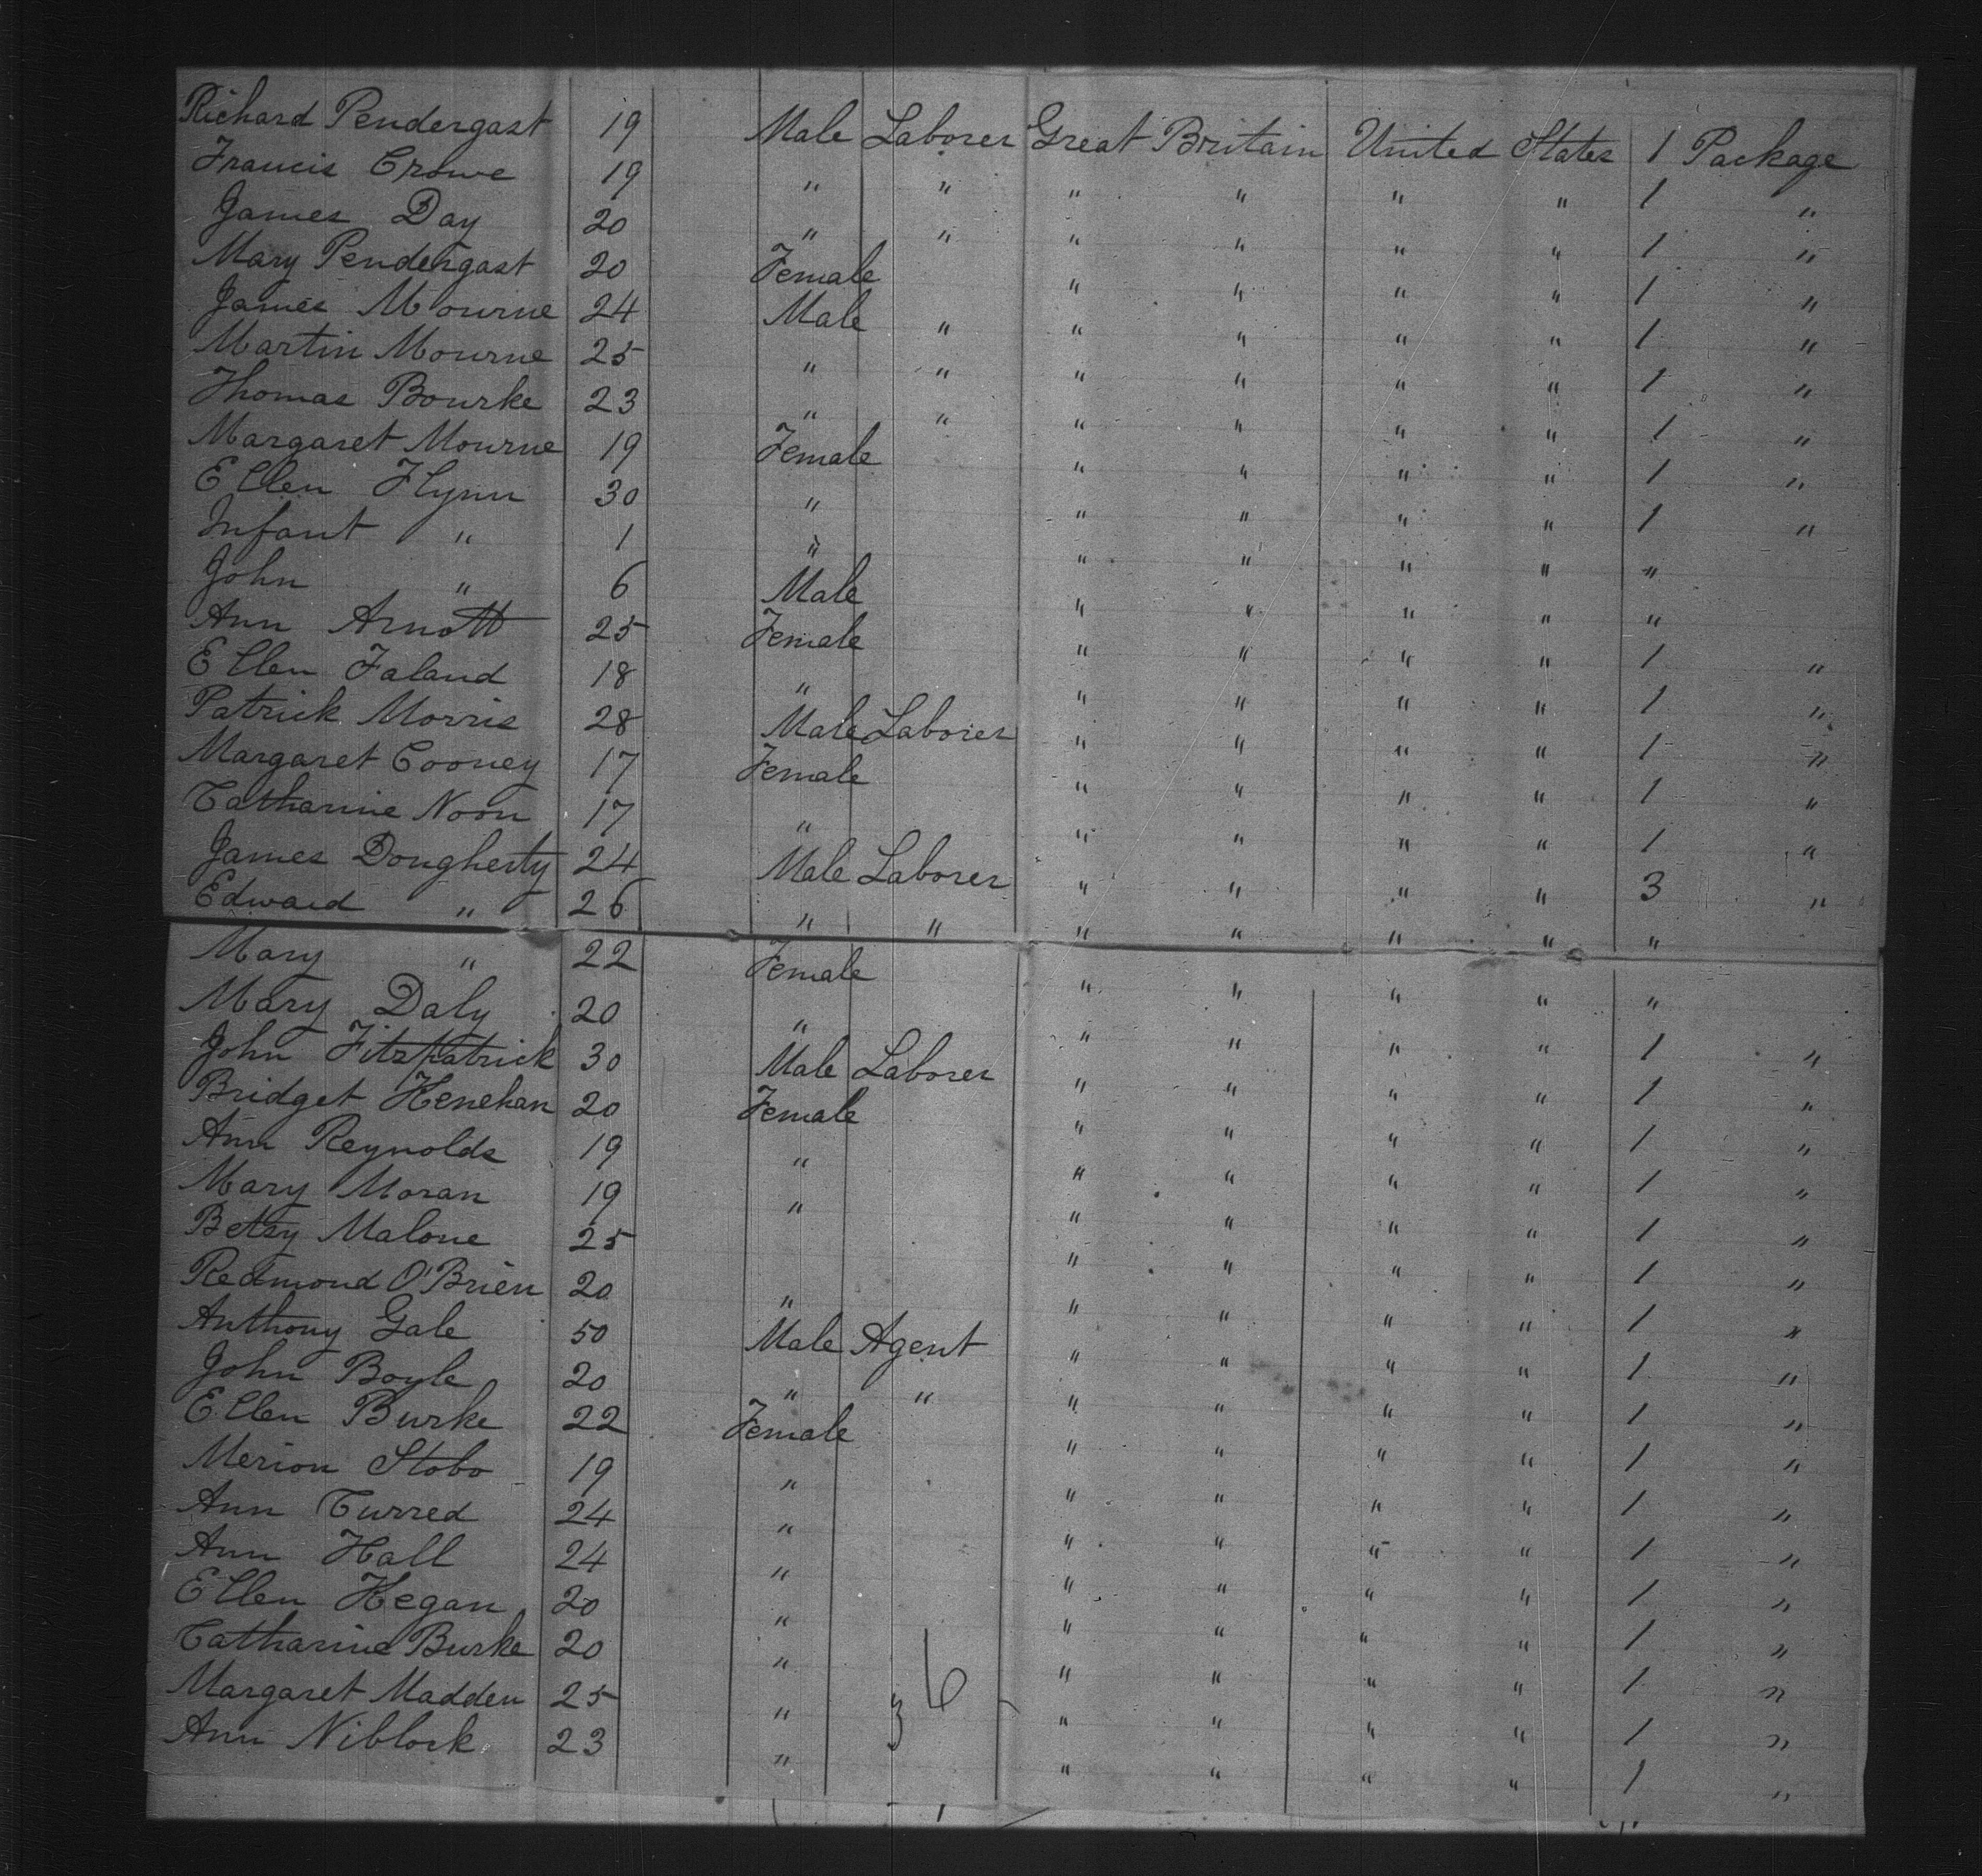 Richard Pendergast 19 Male Laborer Great Britain United States 1 Package
Francis Crowe 19 " " " " " " 1 "
James Day 20 " " " " " " 1 "
Mary Pendergast 20 Female " " " " 1 "
James Mourne 24 Male " " " " " 1 "
Martin Mourne 25 " " " " " " 1 "
Thomas Bourke 23 " " " " " " 1 "
Margaret Mourne 19 Female " " " " 1 "
Ellen Flynn 30 " " " " " 1 "
Infant " 1 " " " " " "
John " 6 Male " " " " "
Ann Arnott 25 Female " " " " 1 "
Ellen Faland 18 " " " " " 1 "
Patrick Morris 28 Male Laborer " " " " 1 "
Margaret Cooney 17 Female " " " " 1 "
Catharine Noon 17 " " " " " 1 "
James Dougherty 24 Male Laborer " " " " 3 "
Edward " 26 " " " " " " "
Mary " 22 Female " " " " "
Mary Daly 20 " " " " " 1 "
John Fitzpatrick 30 Male Laborer " " " " 1 "
Bridget Henehan 20 Female " " " " 1 "
Ann Reynolds 19 " " " " " 1 "
Mary Moran 19 " " " " " 1 "
Betsy Malone 25 " " " " 1 "
Redmond O'Brien 20 " " " " " 1 "
Anthony Gale 50 Male Agent " " " " 1 "
John Boyle 20 " " " " " " 1 "
Ellen Burke 22 Female " " " " 1 "
Merion Stobo 19 " " " " " 1 "
Ann Curred 24 " " " " " 1 "
Ann Hall 24 " " " " " 1 "
Ellen Hegan 20 " " " " " 1 "
Catharine Burke 20 " " " " " 1 "
Margaret Madden 25 " " " " " 1 "
Ann Niblock 23 " " " " " 1 "
36